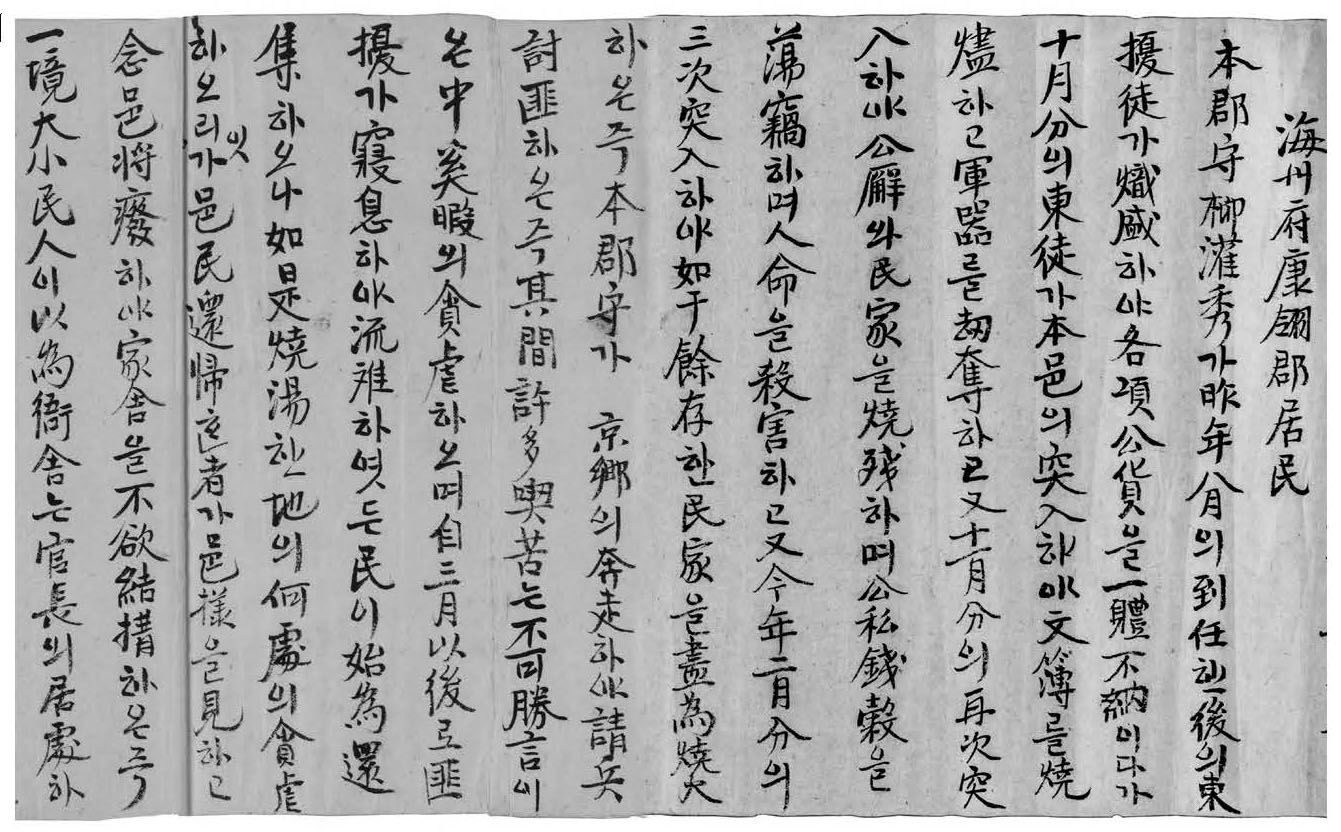 海州府康翎郡居民
本郡守柳灌秀가昨年八月의到任한後의東
擾徒가熾盛하야各項公貨을一體不納이다가
十月分의東徒가本邑의突入하야文簿를燒
燼하고軍器를刼奪하고又十一月分의再次突
入하야公廨와民家을燒殘하며公私錢穀을
蕩竊하며人命을殺害하고又今年二月分의
三次突入하야如干餘存한民家을盡為燒火
하온즉本郡守가 京鄕의奔走하야請兵
討匪하온즉其間許多喫苦는不可勝言이
온中奚暇의貪虐하오며自三月以後로匪
擾가寢息하야流離하엿든民이始為還
集하오나如是燒蕩한地의何處의貪虐
하오리잇가邑民還歸 者가邑樣을見하고
念邑將癈하야家舍을不欲結搆하온즉
一境大小民人이以為衙舍는官長의居處하